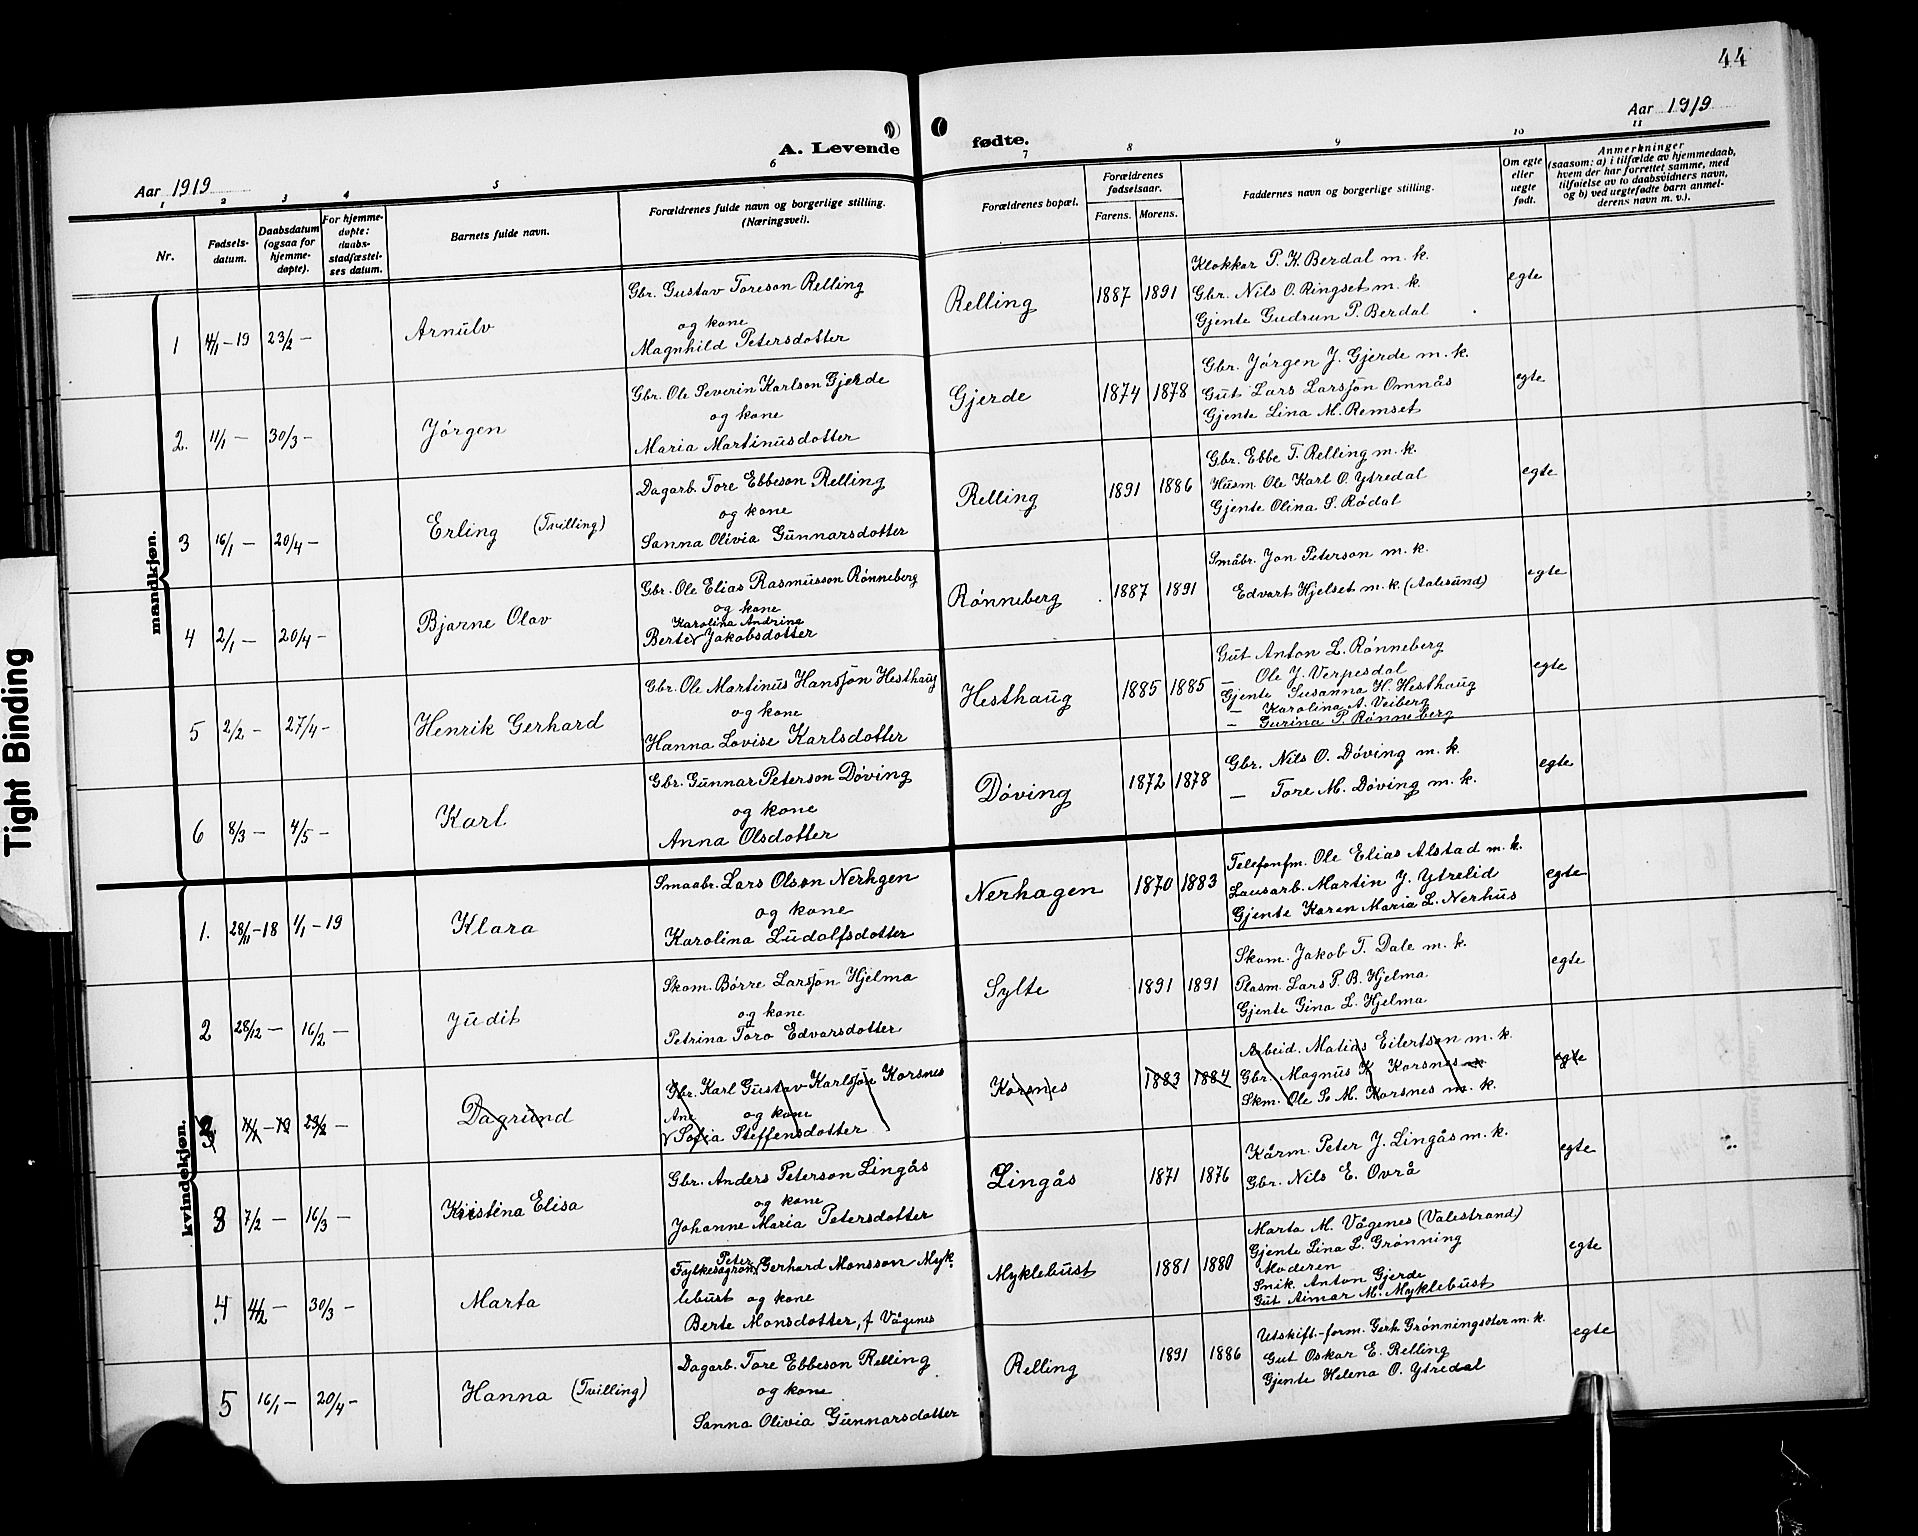 44
Aar 1919
Aar 1919
A. Levende fødte.
1 2 3 4 5 6 7 8 9 10 11
Nr.
Fødsels-
datum.
Daabsdatum
(ogsaa for
hjemme-
døpte).
For hjemme-
døpte:
daabs-
stadfæstel-
ses datum.
Barnets fulde navn.
Forældrenes fulde navn og borgerlige stilling.
(Næringsvei).
Forældrenes bopæl.
Forældrenes
fødselsaar.
Farens. Morens.
Faddernes navn og borgerlige stilling.
Om egte
eller
uegte
født.
Anmerkninger
(saasom: a) i tilfælde av hjemmedaab,
hvem der har forrettet samme, med
tilføielse av to daabsvidners navn,
og b) ved uegtefødte barn anmel-
derens navn m. v.).
Tight Binding
mandkjøn.
1 4/1 – 19 23/2 – Arnulv
Gbr. Gustav Toreson Relling
og kone
Magnhild Petersdotter
Relling 1887 1891
Klokkar P. K. Berdal m. k.
Gbr. Nils O. Ringset m. k.
Gjente Gudrun P. Berdal
egte
2. 11/1 – 30/3 – Jørgen
Gbr. Ole Severin Karlson Gjerde
og kone
Maria Martinusdotter
Gjerde 1874 1878
Gbr. Jørgen J. Gjerde m. k.
Gut Lars Larsson Omnås
Gjente Lina M. Remset
egte
3 16/1 – 20/4 – Erling (Tvilling)
Dagarb. Tore Ebbeson Relling
og kone
Sanna Olivia Gunnarsdotter
Relling 1891 1886
Gbr. Ebbe T. Relling m. k.
Husm. Ole Karl O. Ytredal
Gjente Olina S. Rødal
egte
4 2/1 – 20/4 – Bjarne Olav
Gbr. Ole Elias Rasmusson Rønneberg
og kone
Karolina Andrine
Berte Jakobsdotter
Rønneberg 1887 1891
Småbr. Jon Peterson m. k.
Edvart Hjelset m. k. (Aalesund)
egte
5 2/2 – 27/4 – Henrik Gerhard
Gbr. Ole Martinus Hansson Hesthaug
og kone
Hanna Lovise Karlsdotter
Hesthaug 1885 1885
Gut Anton L. Rønneberg
– Ole J. Verpesdal
Gjente Susanna H. Hesthaug
– Karolina A. Veiberg
– Gurina P. Rønneberg
egte
6 8/3 – 4/5 – Karl
Gbr. Gunnar Peterson Døving
og kone
Anna Olsdotter
Døving 1872 1878
Gbr. Nils O. Døving m. k.
– Tore M. Døving m. k.
egte
kvindekjøn.
1. 28/11 – 18 4/1 – 19 Klara
Smaabr. Lars Olson Nerhgen
og kone
Karolina Ludolfsdotter
Nerhagen 1870 1883
Telefonfm. Ole Elias Alstad m. k.
Lausarb. Martin J. Ytrelid
Gjente Karen Maria L. Nerhus
egte
2 28/12 – 16/2 – Judit
Skom. Børre Larsson Hjelma
og kone
Petrina Toro Edvarsdotter
Sylte 1891 1891
Skom. Jakob T. Dale m. k.
Plasm. Lars P. B. Hjelma
Gjente Gina L. Hjelma
egte
3 4/1 – 19 23/2 – Dagrund
Gbr. Karl Gustav Karlsson Korsnes
Ane og kone
Sofia Steffensdotter
Korsnes 1883 1884
Arbeid. Matias Eilertson m. k.
Gbr. Magnus K Korsnes
Skm. Ole P. M. Korsnes m. k.
egte
3 7/2 – 16/3 – Kristina Elisa
Gbr. Anders Peterson Lingås
og kone
Johanne Maria Petersdotter
Lingås 1871 1876
Kårm. Peter J. Lingås m. k.
Gbr. Nils E. Ovrå
egte
4 4/2 – 30/3 – Marta
Peter
Fylkesagron. Gerhard Monsson Myk-
lebust og kone
Berte Monsdotter, f Vågenes
Myklebust 1881 1880
Marta M. Vågenes (Valestrand)
Gjente Lina L. Grønning
Moderen
Snik. Anton Gjerde
Gut Aimar M. Myklebust
egte
5 16/1 – 20/4 – Hanna (Tvilling)
Dagarb. Tore Ebbeson Relling
og kone
Sanna Olivia Gunnarsdotter
Relling 1891 1886
Utskift.-form. Gerh. Grønningseter m. k.
Gut Oskar E. Relling
Gjente Helena O. Ytredal
egte